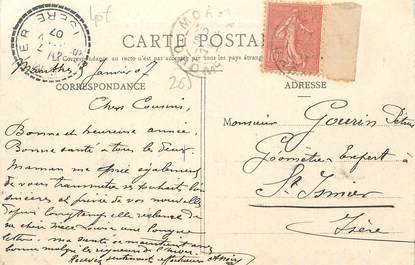 CARTE POSTALE
La Correspondance au recto n'est pas acceptée par tous les pays étrangers
CORRESPONDANCE
ADRESSE
ISERE
07
janvier 07
Chers Cousins,
Bonne et heureuse année.
Bonne santé à tous les deux.
Maman me prie également
de vous transmettre ses souhaits bien
sincères et prive de vos nouvelles
depuis longtemps, elle réclame de
sa chère une longue
lettre. ma santé se maintient assez
bonne malgré les rigueurs de l'hiver.
Monsieur Gourin
Géomètre Expert à
St Ismier
Isère